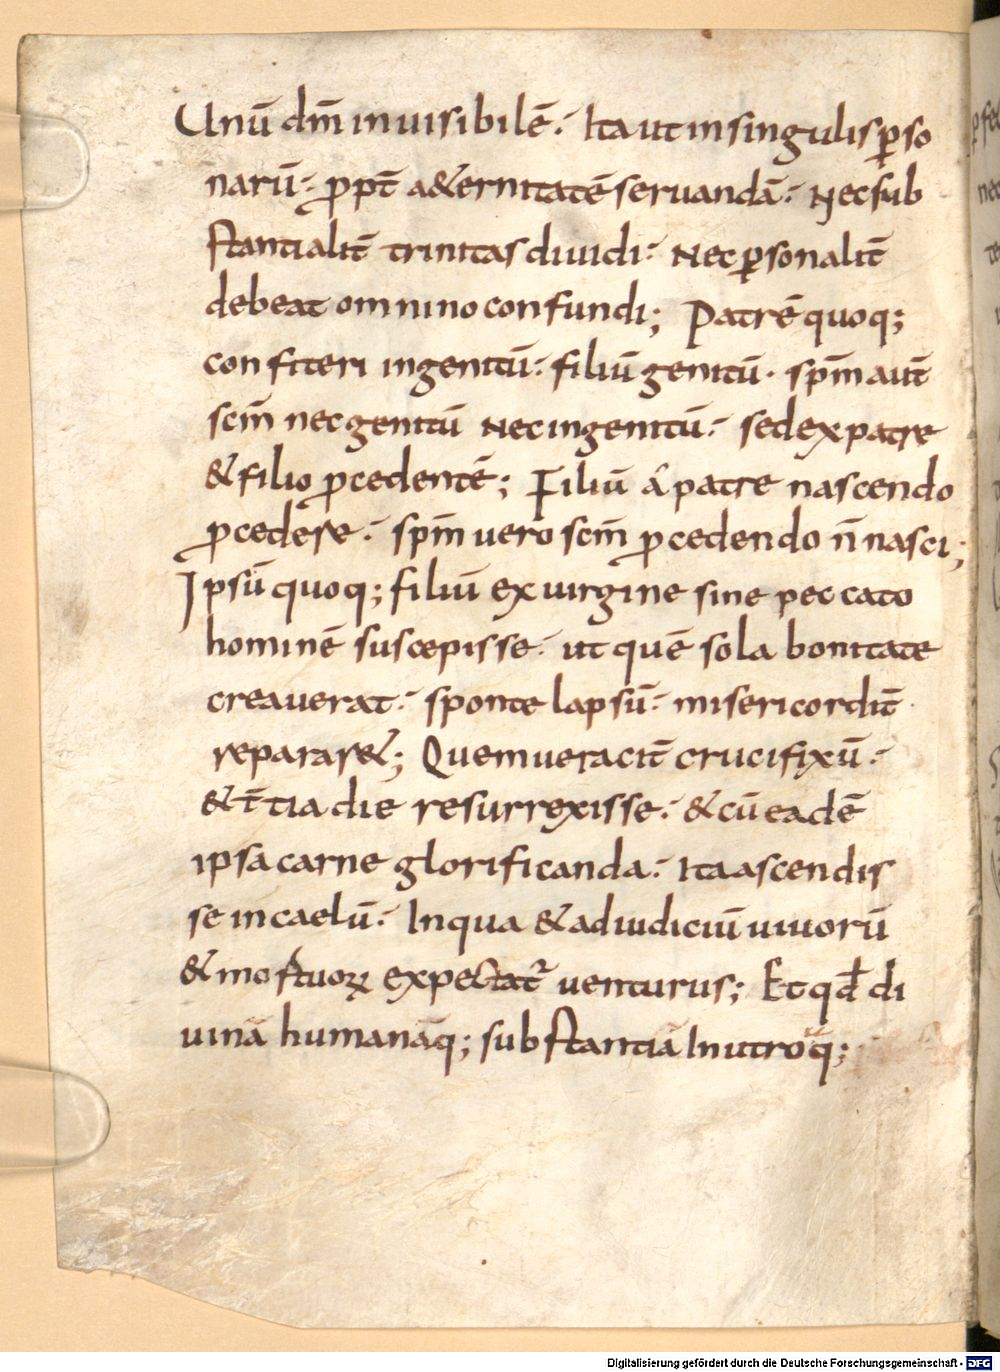 Unū dm̄ inuisibilē· Ita ut in singulis ꝑso
narū· ꝓpt̄ a&ernitatē seruandā· Nec sub
stantialit̄ trinitas diuidi· Nec ꝑsonalit̄
debeat omnino confundi; Patrē quoq;
confiteri ingenitū· filiū genitū· spm̄ aut̄
scm̄ nec genitū nec ingenitū· sed ex patre
& filio ꝓcedentē; Filiū á patre nascendo
ꝓcedere· spm̄ uero scm̄ ꝓcedendo n̄ nasci;
Ipsū quoq; filiū ex uirgine sine peccato
hominē suscepisse· ut quē sola bonitate
creauerat· sponte lapsū· misericordit̄
reparar&; Quem ueracit̄ crucifixū·
& t̄tia die resurrexisse· & cū eadē
ipsa carne glorificanda· Ita ascendis
se in caelū· In qua & ad iudiciū uiuorū
& mortuoꝝ expectat᷑ uenturus; Et qđ di
uinā humanāq; substantiā In utroq;
Digitalisierung gefördert durch die Deutsche Forschungsgemeinschaft - DFG